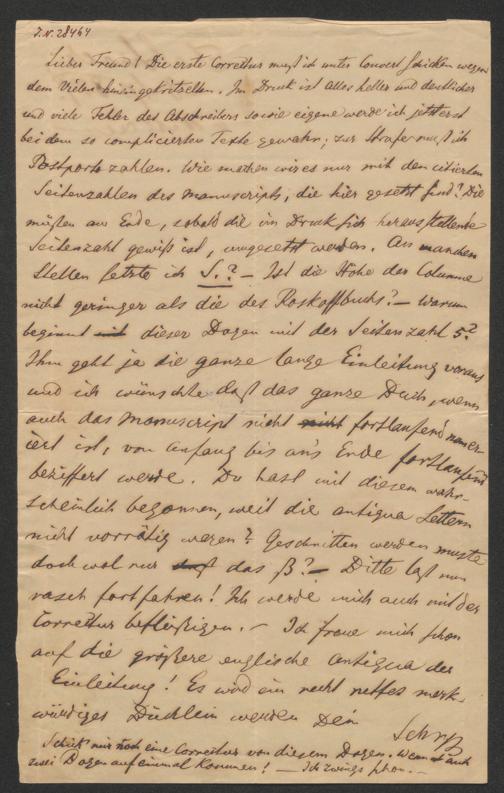 J. N. 28464
Lieber Freund! Die erste Correctur muß ich unter Couvert schicken wegen
dem Vielen hineingekritzelten. Im Druck ist Alles heller und deutlicher
und viele Fehler des Abschreibers sowie eigene werde ich jetzt erst
bei dem so complicierten Texte gewahr; zur Strafe muß ich
Postporto zahlen. Wie machen wir es nur mit den citierten
Seitenzahlen des Manuscripts, die hier gesetzt sind? Die
müßen am Ende, sobald die im Druck sich herausstellende
Seitenzahl gewiß ist, umgesetzt werden. An manchen
Stellen setzte ich S.? – Ist die Höhe der Columne
nicht geringer als die des Roskoffbuchs? – Warum
beginnt mit dieser Bogen mit der Seitenzahl 5?
Ihm geht ja die ganze lange Einleitung voraus
und ich wünschte daß das ganze Buch, wenn
auch das Manuscript nicht nicht fortlaufend numer-
iert ist, von anfang bis an's Ende fortlaufend
beziffert werde. Du hast mit diesem wahr-
scheinlich begonnen, weil die antiqua Lettern
nicht vorrätig waren? Geschnitten werden mußte
doch wol nur das ß? – Bitte laß nun
rasch fortfahren! Ich werde mich auch mit der
Correctur befleißigen. – Ich freue mich schon
auf die größere englische antiqua der
Einleitung! Es wird ein recht nettes merk-
würdiges Büchlein werden Dein
Schick mir noch eine Correctur von diesem Bogen. Wenn auch
zwei Bogen auf einmal kommen! – Ich zwings schon. –